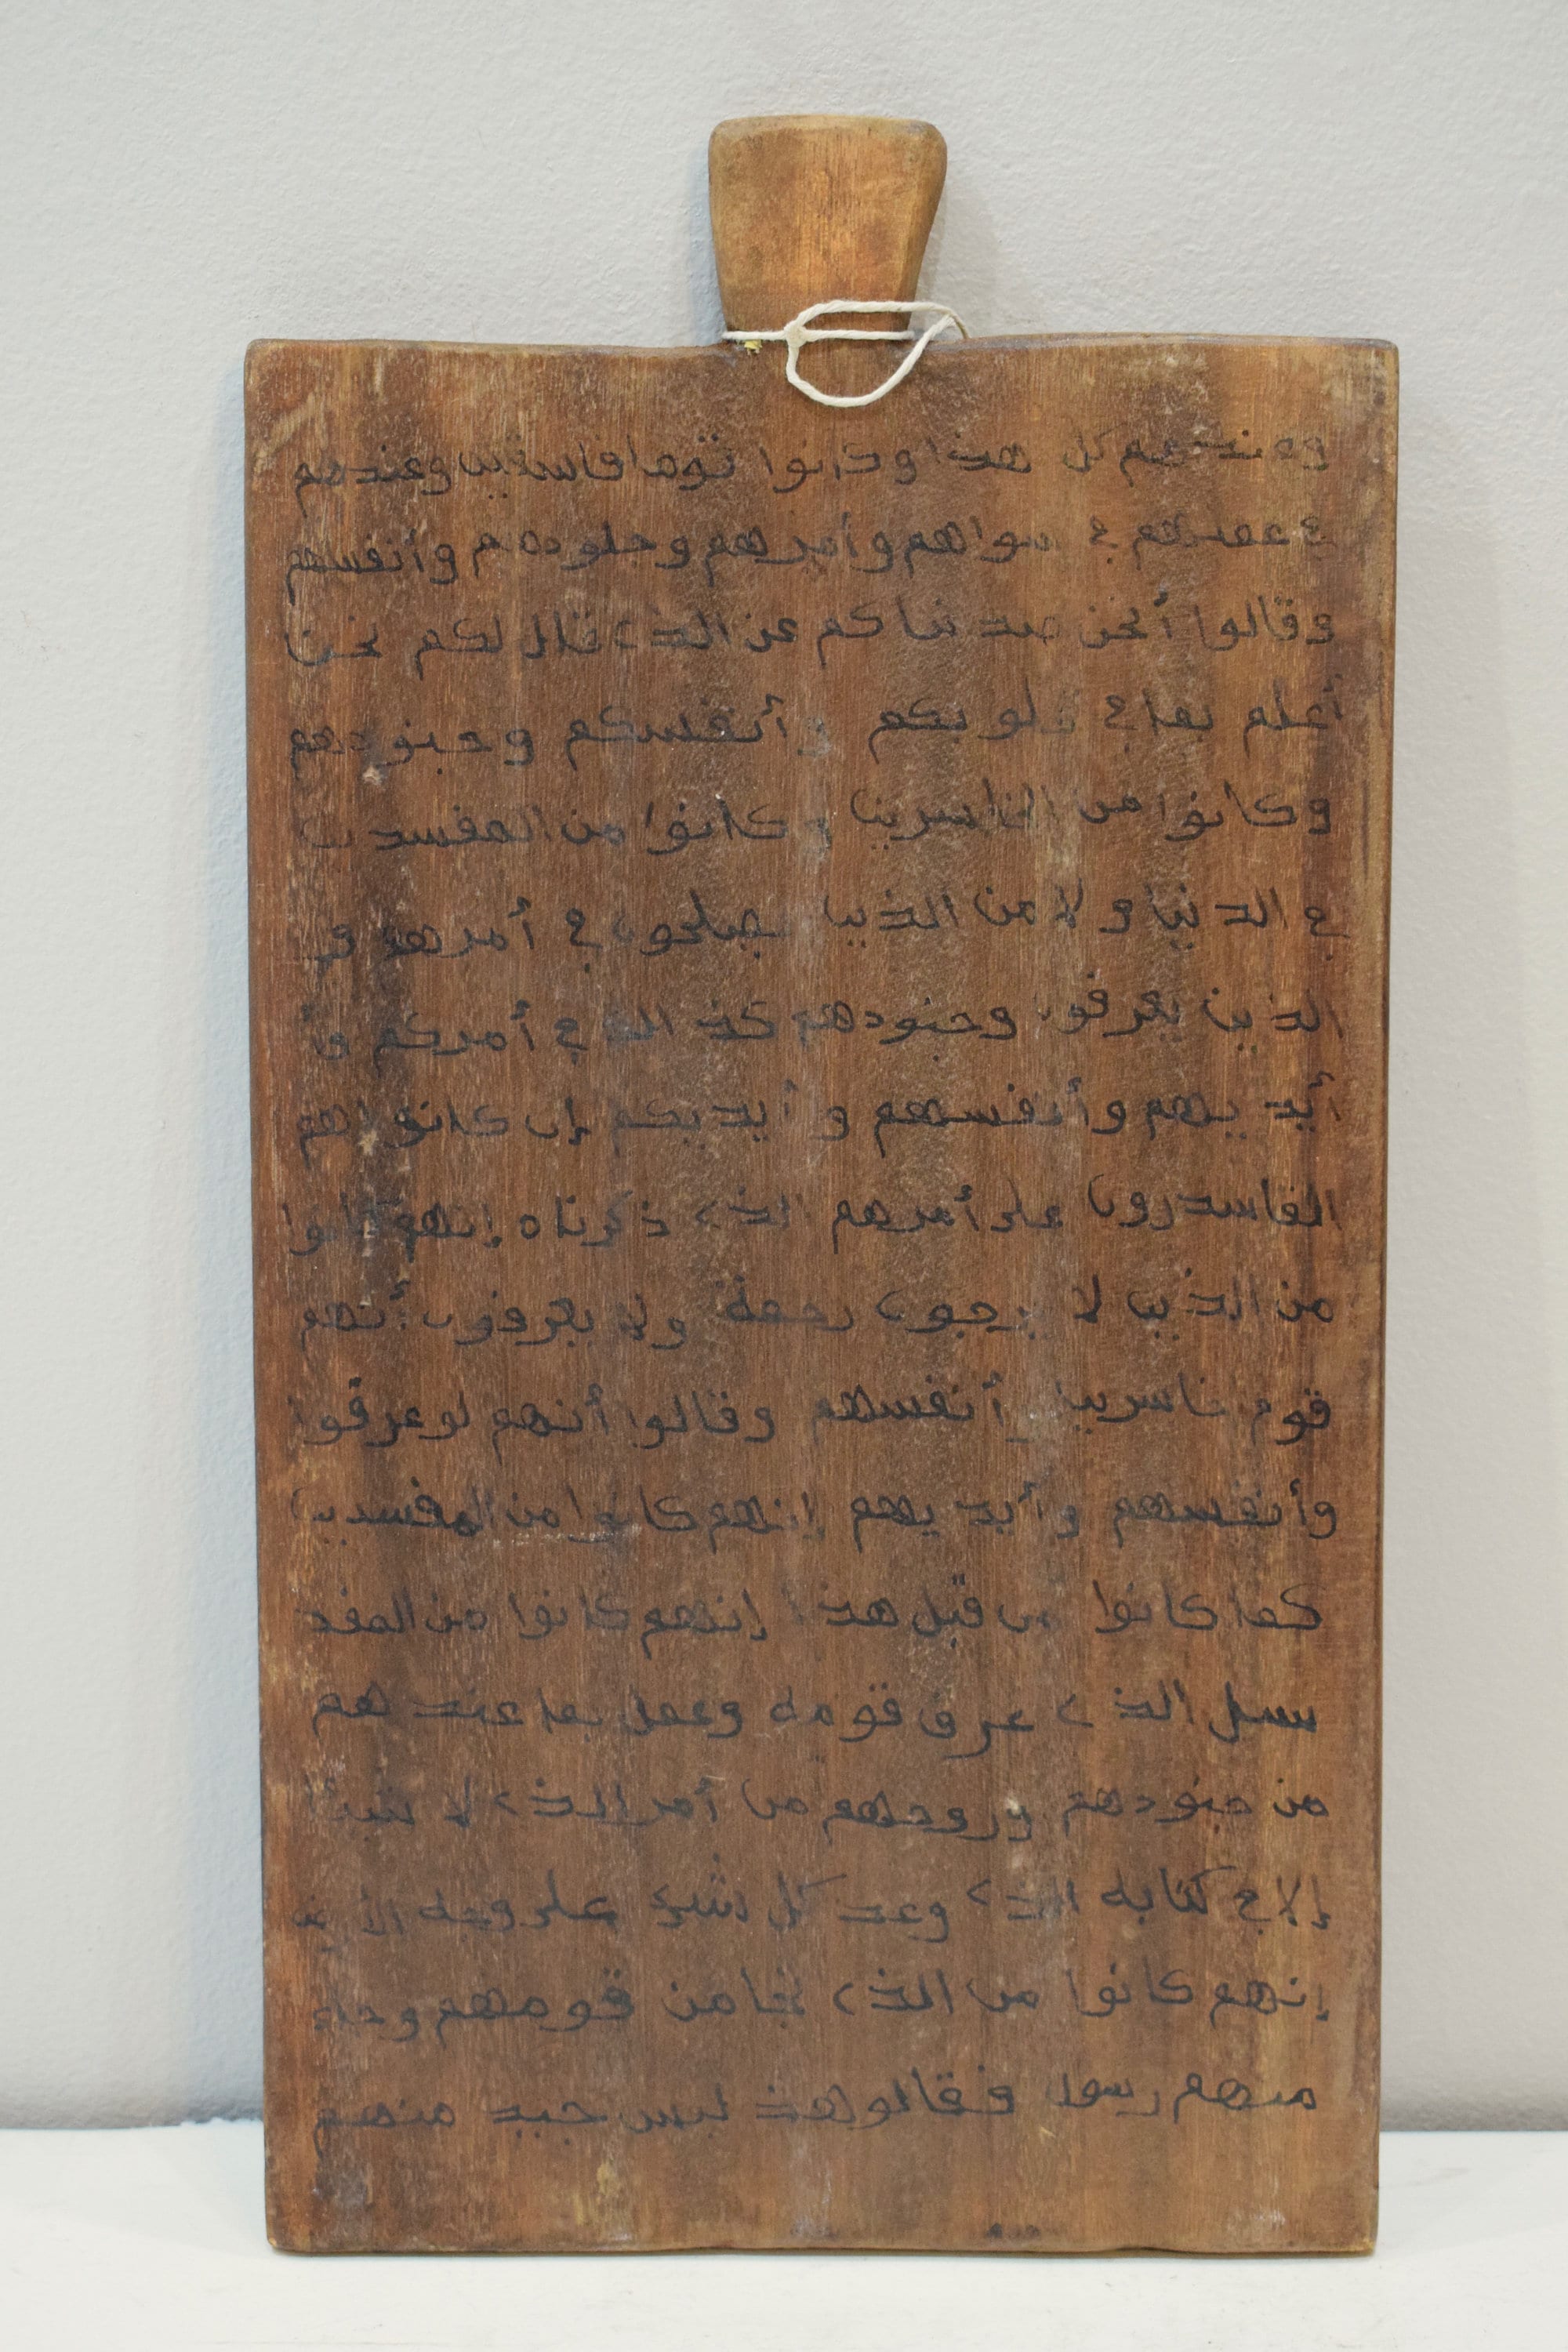 وعندهم كل هذا وكانوا قوما فاسقين وعندهم
في سواهم وأمرهم وجلودهم وأنفسهم
وقالوا أنحن صددناكم عن الذي قال لكم نحن
أعلم بما في قلوبكم وأنفسكم وجنودهم
وكانوا من الخاسرين وكانوا من المفسدين
في الدنيا ولا من الذين يصلحون في أمرهم و
الذين يعرفون وجنودهم كذ في أمركم وأ
أيديهم وأنفسهم وأيديكم إن كانوا هم
الفاسدرون على أمرهم الذي ذكرناه إنهم كانوا
من الذين لا يرجون رحمة ولا يعرفون أنهم
قوم خاسرين أنفسهم وقالوا أنهم لو عرفوا
وأنفسهم وأيديهم إنهم كانوا من المفسدين
كما كانوا من قبل هذا إنهم كانوا من المفد
سيل الذي عرف قومه وعمل بما عندهم
من جنودهم وروحهم من أمر الذي لا
إلا في كتابه الذي وعد كل شيء على وجه
إنهم كانوا من الذي نجا من قومهم وجاء
منهم رسول فقالو لهذ ليس جيد منهم